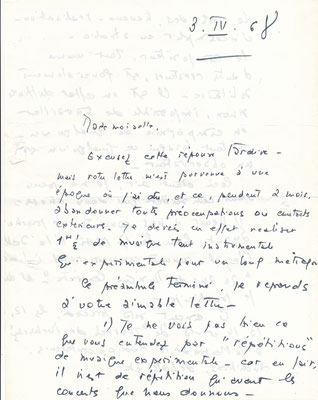 3. IV. 68
Mademoiselle.
Excusez cette réponse tardive -
mais votre lettre m'est parvenue à une
époque où j'ai dû, et ce, pendant 2 mois,
abandonner toute préoccupations ou contacts
extérieurs. Je devais en effet réaliser
1H ½ de musique tant instrumentale
qu'expérimentale pour un long métrage
Ce préambule terminé, je réponds
à votre aimable lettre -
1) Je ne vois pas bien ce
que vous entendez par "répétitions"
de musique expérimentale - car en fait,
il n'est de répétition qu'avant les
concerts que nous donnons -